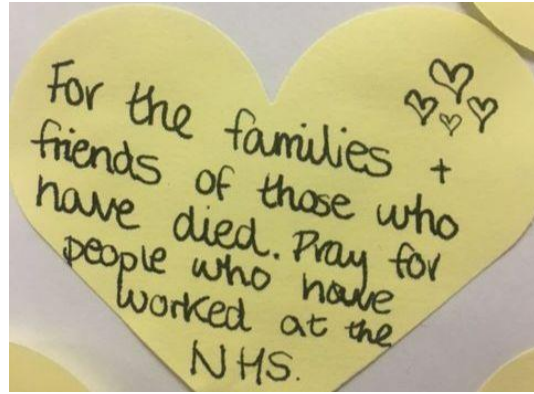 For the families +
friends of those who
have died. Pray for
people who have
worked at the
NHS.